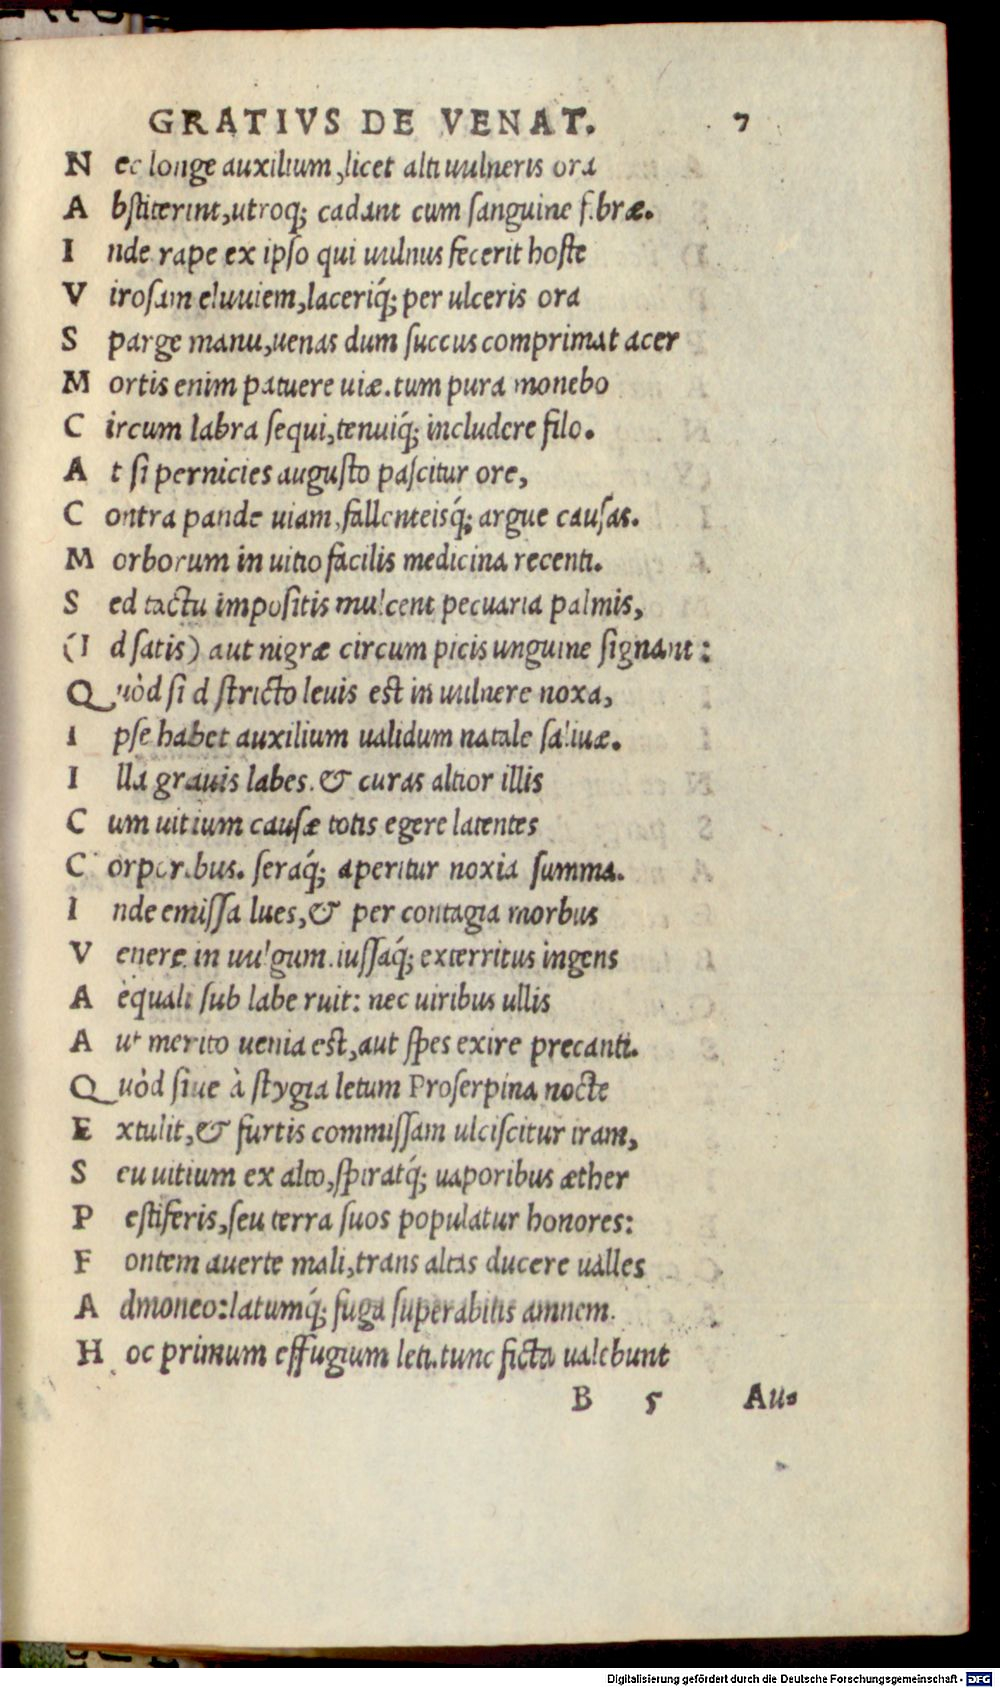 GRATIVS DE VENAT. 7
N ec longe auxilium, licet alti uulneris ora
A bſtiterint, utroq; cadant cum ſanguine fibræ.
I nde rape ex ipſo qui uulnus fecerit hoſte
V iroſam eluuiem, laceriq́; per ulceris ora
S parge manu, uenas dum ſuccus comprimat acer
M ortis enim patuere uiæ. tum pura monebo
C ircum labra ſequi, tenuiq́; includere filo.
A t ſi pernicies auguſto paſcitur ore,
C ontra pande uiam, fallenteisq́; argue cauſas.
M orborum in uitio facilis medicina recenti.
S ed tactu impoſitis mulcent pecuaria palmis,
(I d ſatis) aut nigræ circum picis unguine ſignant:
Q uòd ſi d ſtricto leuis eſt in uulnere noxa,
I pſe habet auxilium ualidum natale ſaliuæ.
I lla grauis labes. & curas altior illis
C um uitium cauſæ totis egere latentes
C orporibus. ſeraq́; aperitur noxia ſumma.
I nde emiſſa lues, & per contagia morbus
V enere in uulgum. iuſſaq́; exterritus ingens
A equali ſub labe ruit: nec uiribus ullis
A ut merito uenia eſt, aut ſpes exire precanti.
Q uòd ſiue à ſtygia letum Proſerpina nocte
E xtulit, & furtis commiſſam ulciſcitur iram,
S eu uitium ex alto, ſpiratq́; uaporibus æther
P eſtiferis, ſeu terra ſuos populatur honores:
F ontem auerte mali, trans altas ducere ualles
A dmoneo: latumq́; fuga ſuperabitis amnem.
H oc primum effugium leti. tunc ficta ualebunt
B 5 Au-
Digitalisierung gefördert durch die Deutsche Forschungsgemeinschaft - DFG